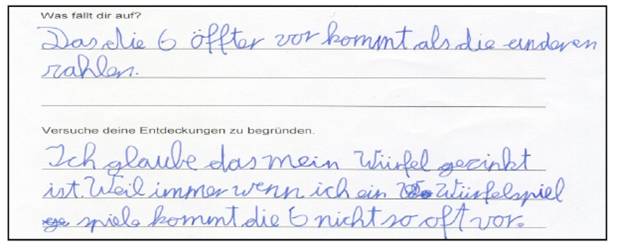 Was fällt dir auf?
Das die 6 öffter vor kommt als die anderen
zahlen.
Versuche deine Entdeckungen zu begründen.
Ich glaube das mein Würfel gezinkt
ist. Weil immer wenn ich ein Würfelspiel
spiele kommt die 6 nicht so oft vor.